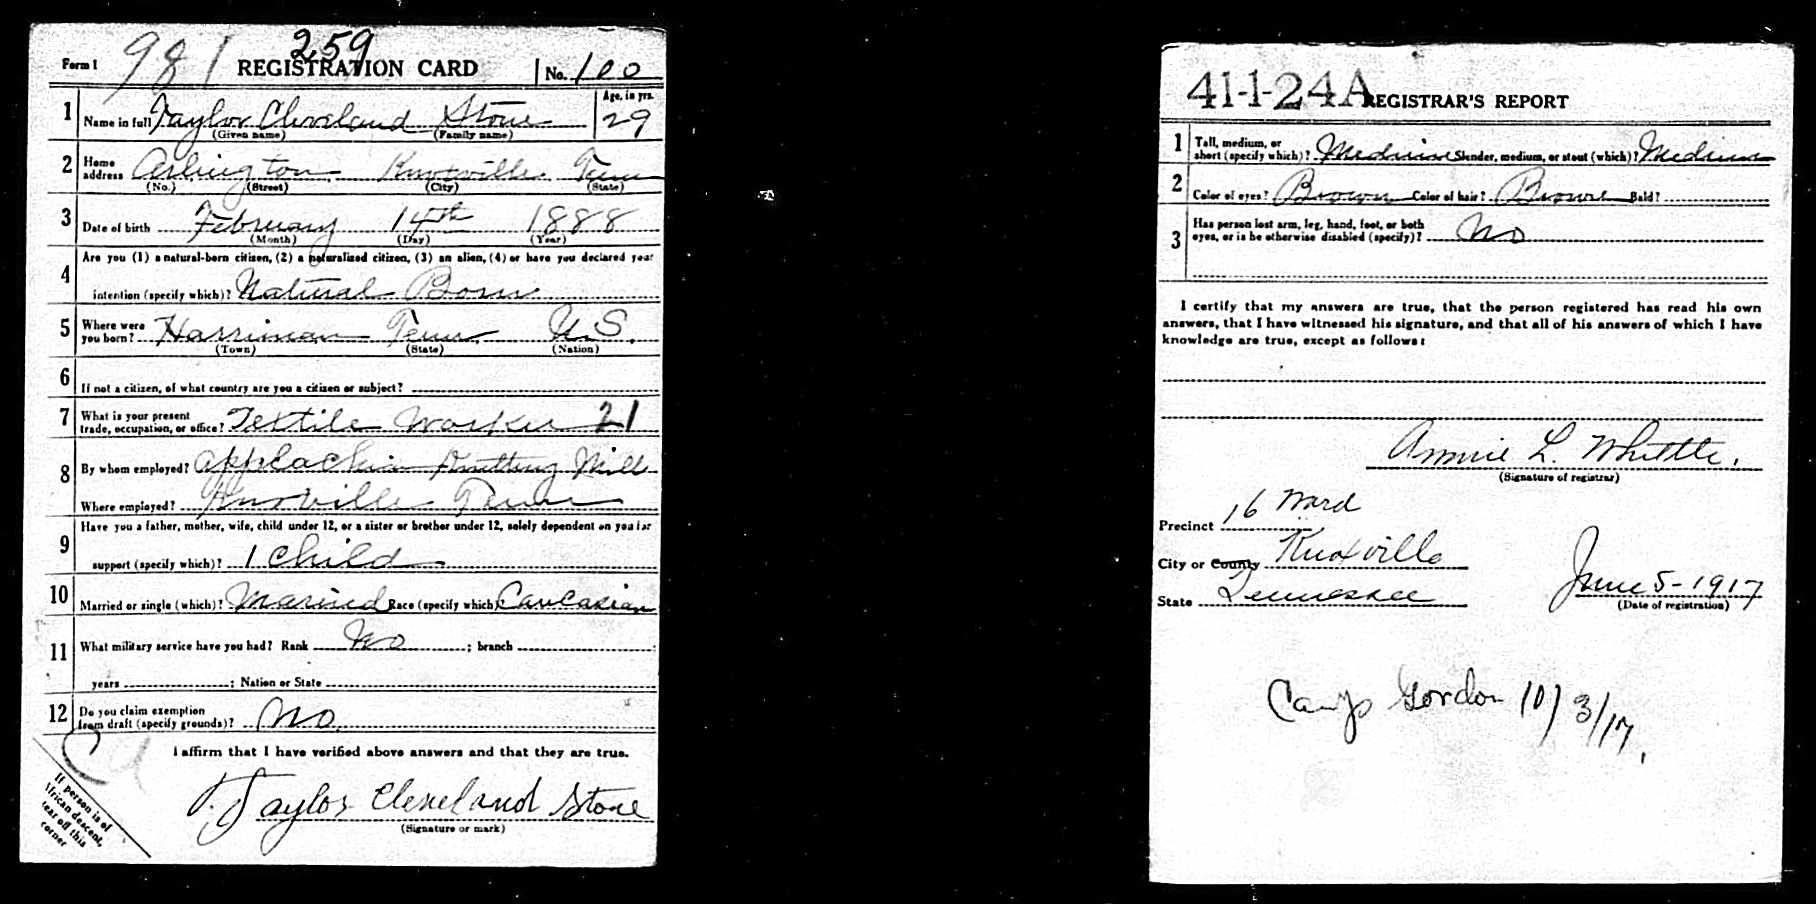 Form 1 981 259
REGISTRATION CARD No. 100
1 Name in full Taylor Cleveland Stone Age, in yrs. 29
(Given name) (Family name)
2 Home address Arlington Knoxville Tenn
(No.) (Street) (City) (State)
3 Date of birth February 14th 1888
(Month) (Day) (Year)
4 Are you (1) a natural-born citizen, (2) a naturalized citizen, (3) an alien, (4) or have you declared your
intention (specify which)? Natural Born
5 Where were you born? Harriman Tenn. U.S.
(Town) (State) (Nation)
6 If not a citizen, of what country are you a citizen or subject?
7 What is your present trade, occupation, or office? Textile Worker 21
8 By whom employed? Applachian Knitting Mill
Where employed? Knoville Tenn
9 Have you a father, mother, wife, child under 12, or a sister or brother under 12, solely dependent on you for
support (specify which)? 1 child
10 Married or single (which)? Married Race (specify which) Caucasian
11 What military service have you had? Rank No ; branch
years ; Nation or State
12 Do you claim exemption from draft (specify grounds)? No.
I affirm that I have verified above answers and that they are true.
Taylor Cleveland Stone
(Signature or mark)
If person is of
African descent,
tear off this
corner
41-1-24A REGISTRAR'S REPORT
1 Tall, medium, or short (specify which)? Medium Slender, medium, or stout (which)? Medium
2 Color of eyes? Brown Color of hair? Brown Bald?
3 Has person lost arm, leg, hand, foot, or both
eyes, or is he otherwise disabled (specify)? No
I certify that my answers are true, that the person registered has read his own
answers, that I have witnessed his signature, and that all of his answers of which I have
knowledge are true, except as follows:
Annie L. Whittle.
(Signature of registrar)
Precinct 16 Ward
City or County Knoxville
State Tennessee June 5-1917
(Date of registration)
Camp Gordon 10/3/17.